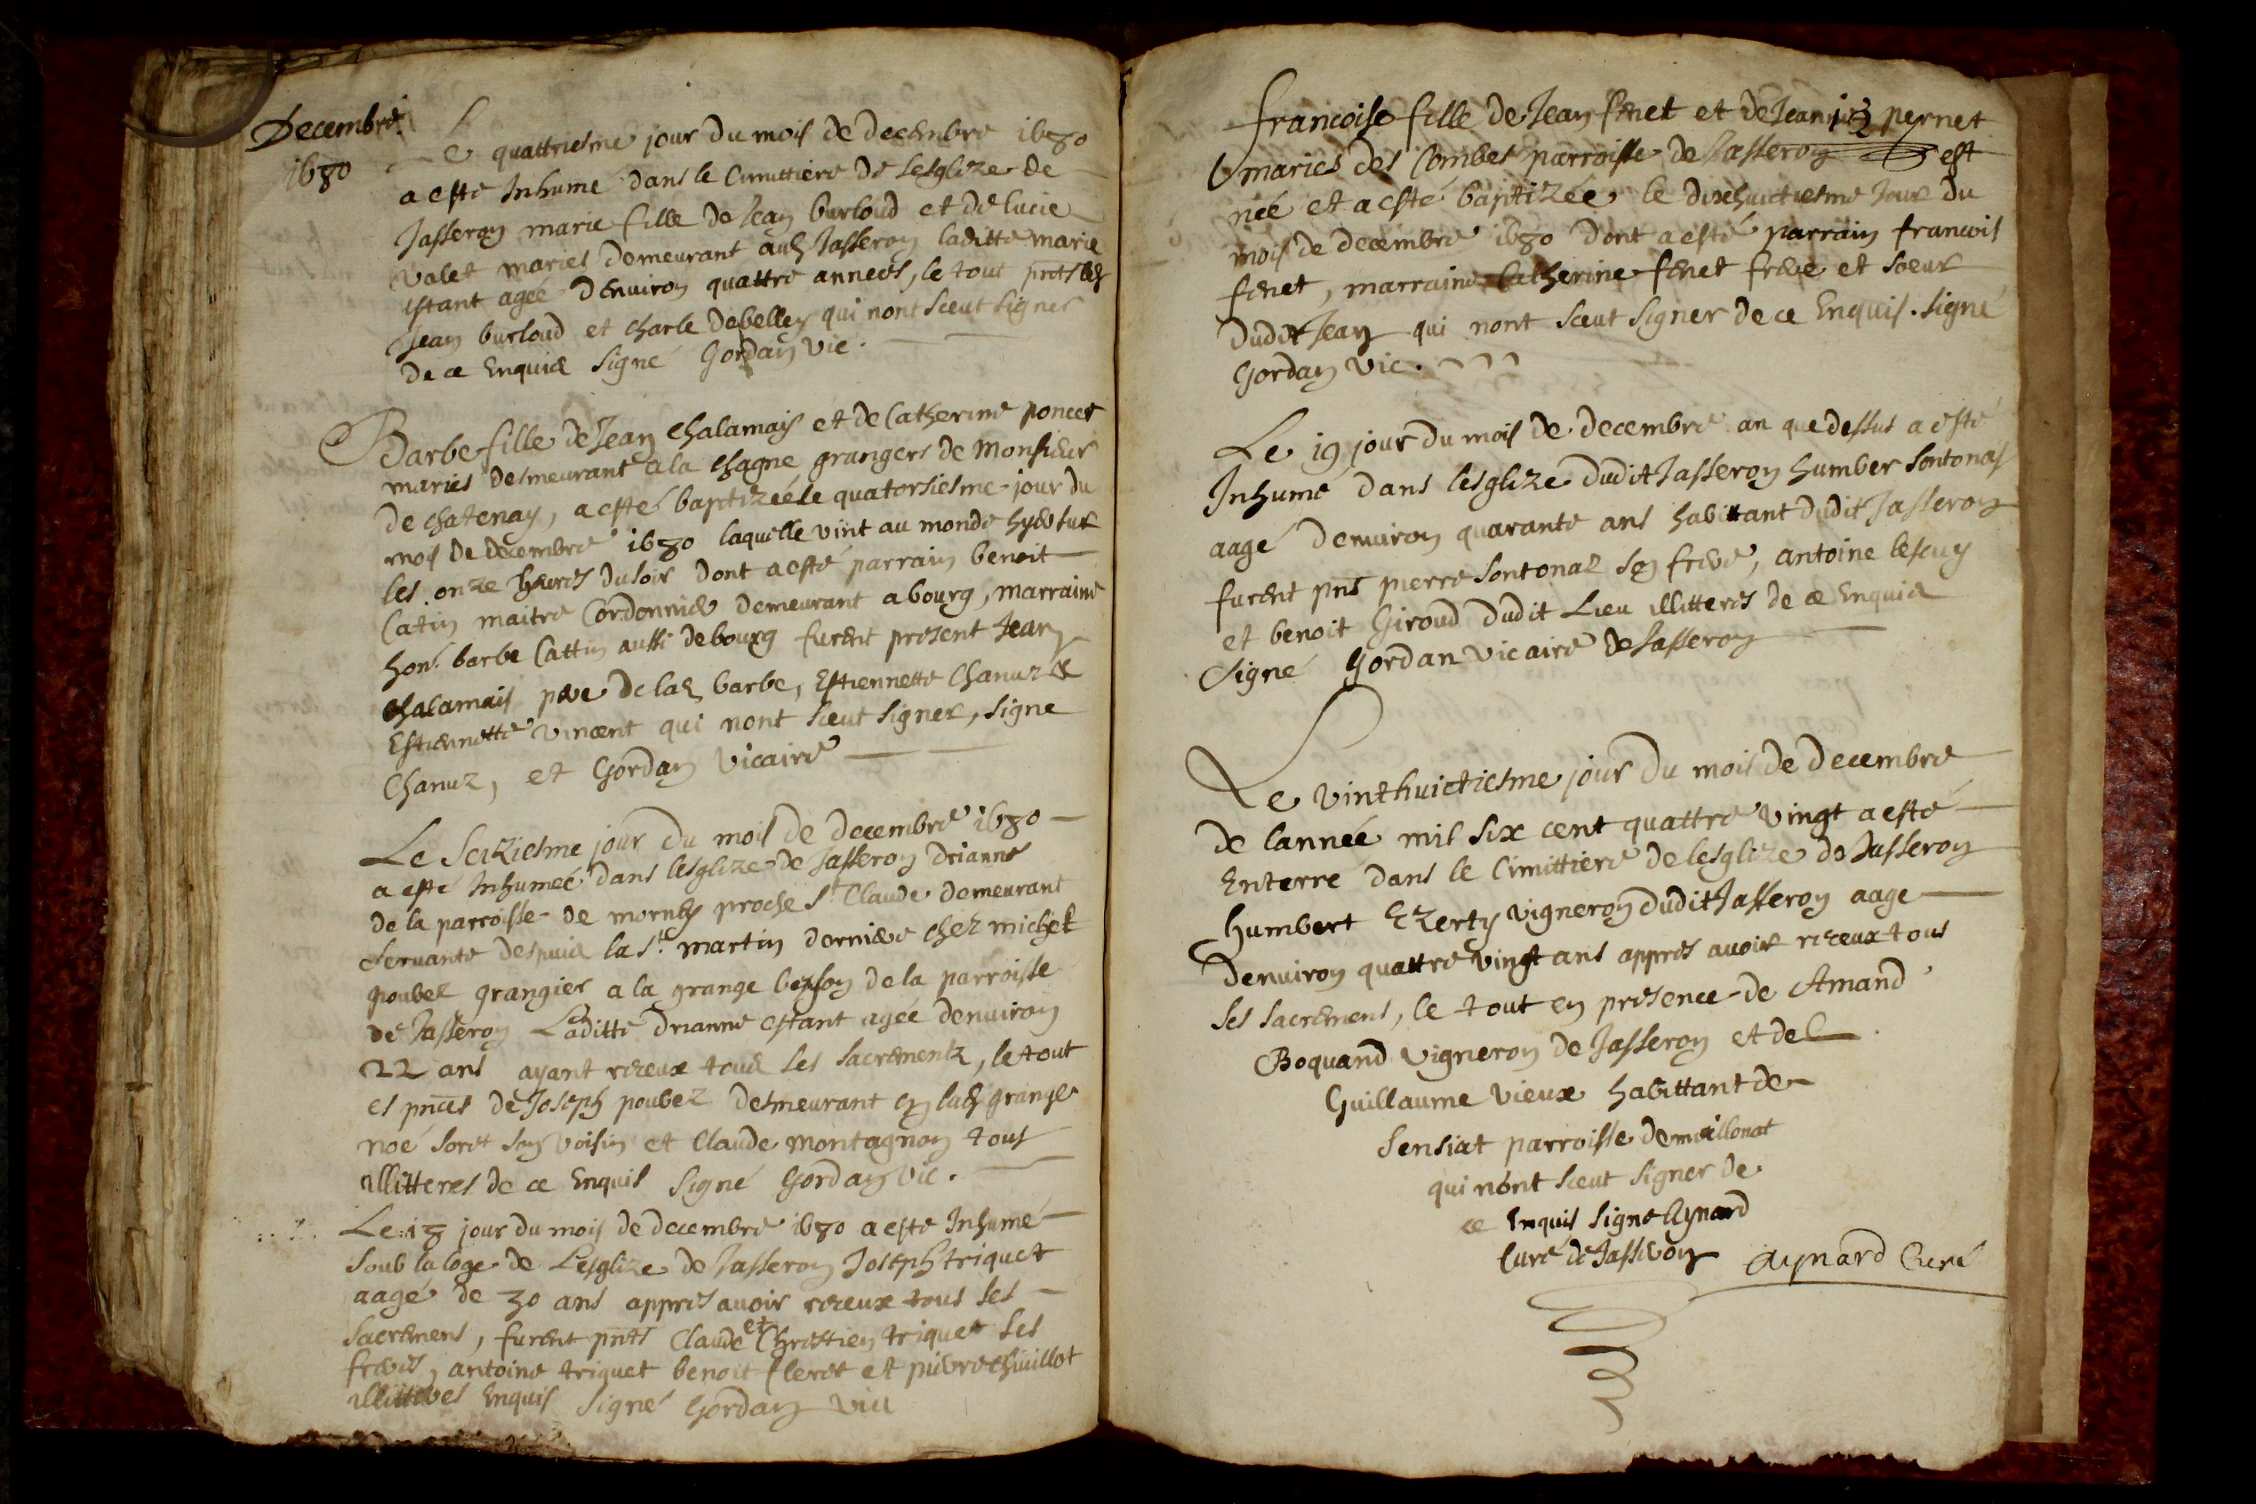 Decembre
1680
Le quattriesme jour du mois de decembre 1680
a esté Inhumé dans le Cimittiere de Lesglize de
Jasseron marie fille de Jean burloud et de lucie
Valet mariés demeurant aud Jasseron laditte marie
estant ageé denviron quattre anneés, le tout pnts led
Jean burloud et charle debelley qui nont sceut signer
de ce Enquis Signé Gordan vic.
Barbe fille de Jean Chalamais et de Catherine poncet
mariés desmeurant a la Chagne grangers de Monsieur
de chatenay, a esté baptizéé le quatorsiesme jour du
mois de decembre 1680 laquelle vint au monde hyer sur
les onze heures du soir dont a esté parrain benoit
Catin maitre Cordonnier demeurant a bourg, marraine
hon. barbe Cattin aussi de bourg furent present Jean
Chalamais pere de lad barbe, Estiennette Chanuz &
Estiennette vincent qui nont sceut signer, signe
Chanuz, et Gordan Vicaire
Le Seiziesme jour du mois de decembre 1680
a esté Inhumeé dans lesglize de Jasseron drianne
de la parroisse de mornay proche St Claude demeurant
Servante despuis la St. martin derniere chez michel
poubel grangier a la grange de la parroisse
de Jasseron Laditte drianne estant agéé denviron
22 ans ayant receux tous les sacrementz, le tout
es pnces de Joseph poubez desmeurant en lad grange
noé soret son voisin et Claude montagnon tous
illitteres de ce Enquis Signé Gordan vic.
Le 18 jour du mois de decembre 1680 a esté Inhumé
soub la loge de Lesglize de Jasseron Joseph triquet
aagé de 30 ans appres avoir receux tous ses
sacremens, furent pnts Claude et Chrestien triquet ses
freres, antoine triquet benoit fleret et pierre thuillot
illitteres Enquis Signé Gordan vic
francoise fille de Jean fenet et de Jeanne pernet
mariés des Combes parroisse de Jasseron est
neé et a esté baptizéé le dixhuictiesme Jour du
mois de decembre 1680 dont a esté parrain francois
fenet, marraine Catherine fenet frere et soeur
dudit Jean qui nont sceut signer de ce Enquis. signé
Gordan vic.
Le 19 jour du mois de decembre an que dessus a esté
Inhumé dans lesglize dudit Jasseron humber sontonas
aagé denviron quarante ans habittant dudit Jasseron
furent pnts pierre sontonaz son frere, antoine lescuy
et benoit Giroud dudit Lieu illitteres de ce Enquis
Signé Gordan vicaire de Jasseron
Le vinthuictiesme jour du mois de decembre
de lanneé mil six cent quattre vingt a esté
Enterré dans le Cimittiere de lesglize de Jasseron
humbert Ezerty vigneron dudit Jasseron aage
denviron quattre vingt ans appres avoir receux tous
ses sacremens, le tout en presence de Amand
Boquand vigneron de Jasseron et de
Guillaume vieux habittant de
Sensiat parroisse de meillonat
qui nont sceut signer de
ce Enquis Signe Aynard
Curé de Jasseron Aynard Curé